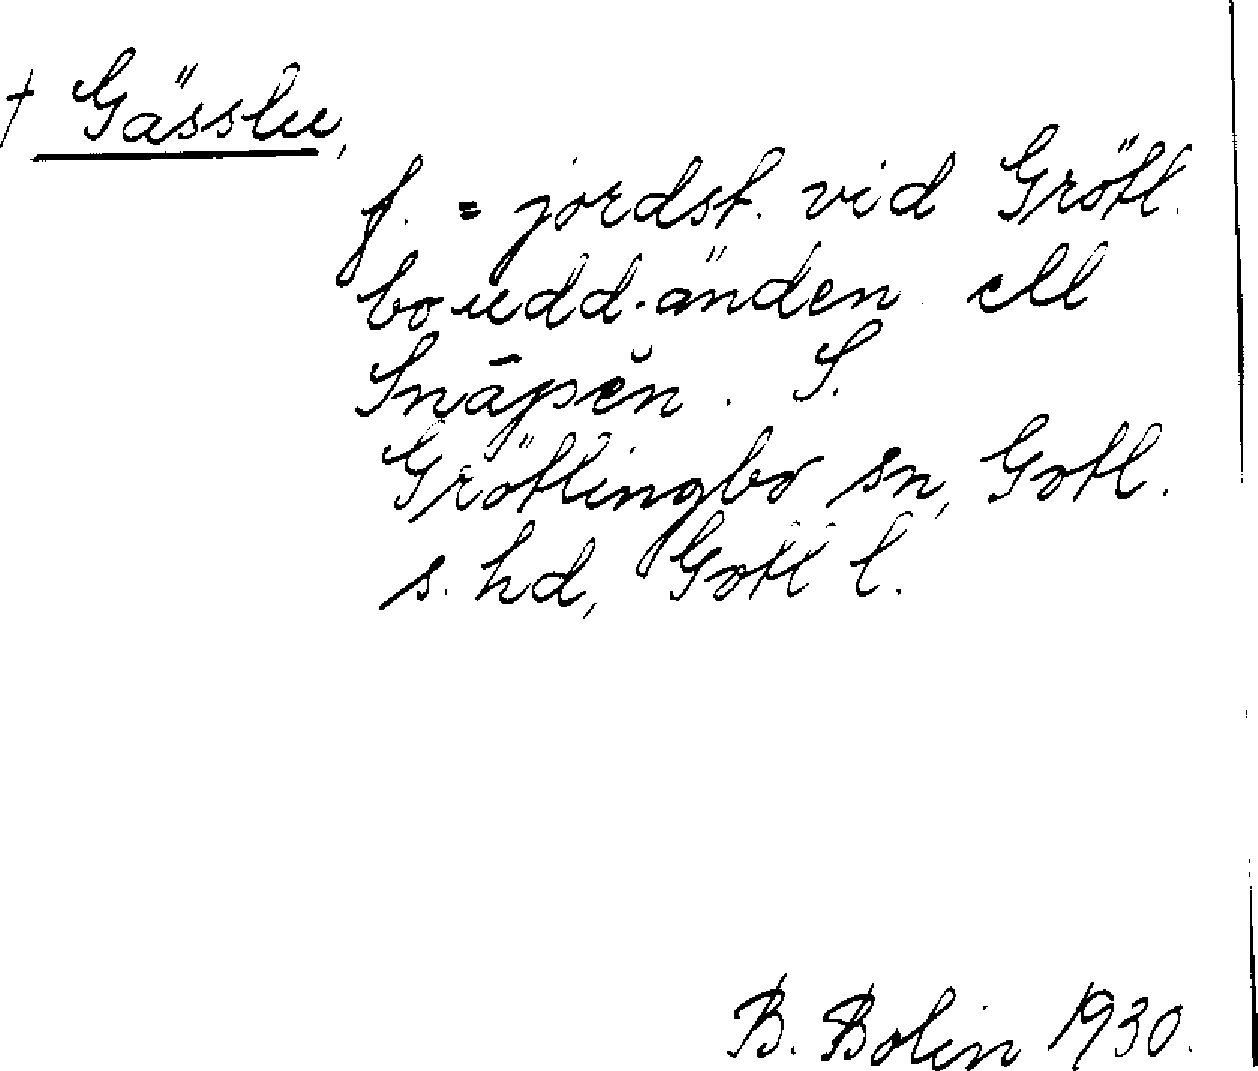 † Gässlu,
f. = jordst. vid Grötl.
bo udd-änden ell
Snāpĕn. S.
Grötlingbo sn, Gotl.
s. hd, Gotl l.
B. Bolin 1930.